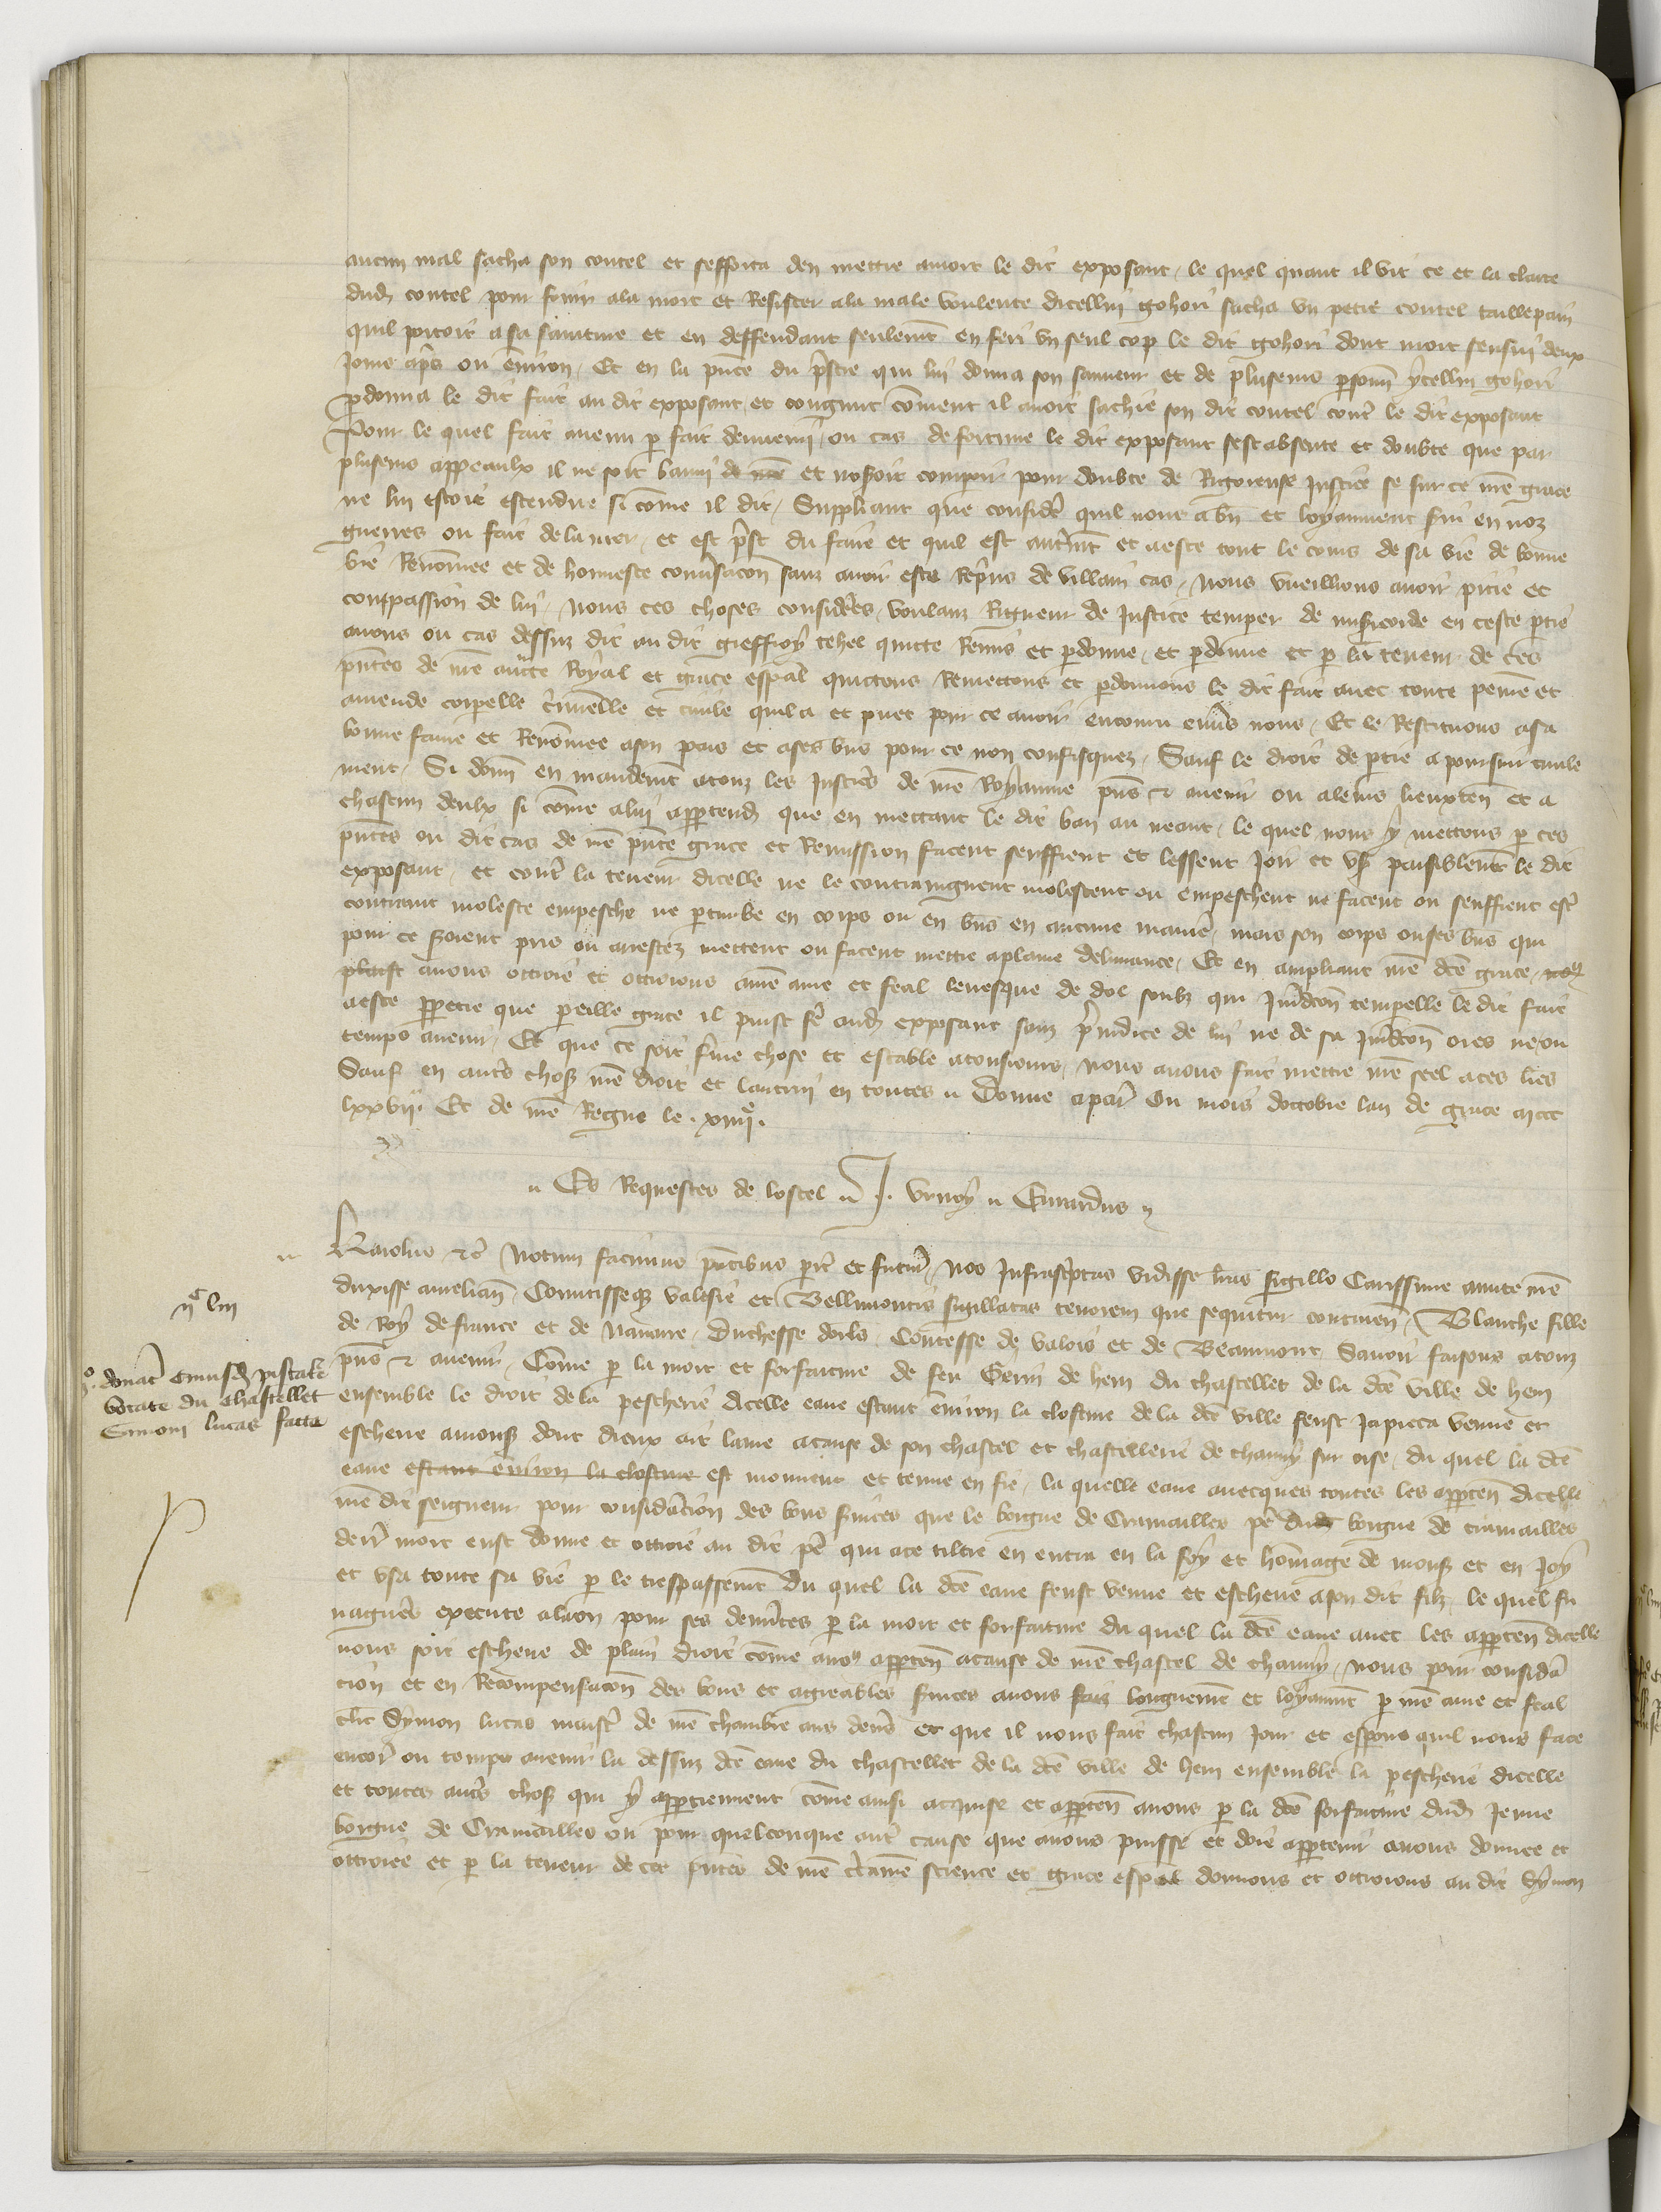 aucun mal sacha son coutel et sefforca den mettre a mort le dit exposant, le quel quant il vit ce et la clarte
dud coutel pour fouir ala mort et Resister ala male voulente dicellui gohori sacha un petit coutel taillepain
quil portoit a sa sainture et en deffendant seulemt en feri un seul cop le dit gohori dont mort sensui deux
Jours apres ou environ, Et en la pnce du pstre qui lui donna son sauveur et de plusieurs personn ycellui gohori
pdonna le dit fait au dit exposant, et congnut coment il avoit sachie son dit coutel contr le dit exposant
Pour le quel fait avenu p fait davenu, ou cas de fortune le dit exposant sest absente et doubte que par
plusieurs appeaulx il ne soit banni de nre et nosoit compoir pour doubte de Rigoreuse Justice se sur ce nre grace
ne lui estoit estendue si come il dit, Suppliant que considere quil nous a bn et loyaument svi en noz
guerres ou fait de la mer, et est prest du faire et quil est autremt et a este tout le cours de sa vie de bonne
vie Renommee et de honneste conversacon sanz avoir este Reprins de villain cas, Nous vueillions avoir pitie et
compassion de lui, Nous ces choses considerees, voulanz Rigueur de Justice temper de misericorde en ceste ptie
avons ou cas dessuz dit au dit gieffroy tehel quicte Remis et pdonne, et pdonne et p la teneur de ces
pntes de nre aucte Royal et grace espal quictons Remettons et pdonnons le dit fait avec toute peine et
amende corpelle criminelle et civile quil a et puet pour ce avoir encouru envers nous, Et le Restituons a sa
bonne fame et Renommee a son pais et a ses bns pour ce non confisquez, Sauf le droit de ptie a poursuir civile
ment, Si donn en mandemt a touz les Justices de nre Royaume pns et avenir ou a leurs lieuxten et a
chascun deulx si come a lui apptend que en mettant le dit ban au neant, le quel nous y mettons p ces
pntes ou dit cas de nre pnte grace et Remission facent seuffrent et lessent Joir et user paisiblemt le dit
exposant, et contr la teneur dicelle ne le contraingnent molestent ou empeschent ne facent ou seuffrent estr
contraint moleste empesche ne pturbe en corps ou en bns en aucune maniere, mais son corps ou ses bns qui
pour ce seroient pris ou arrestez mettent ou facent mettre a plaine delivrance, Et en ampliant nre dte grace,
plaist avons ottroie et ottroions a nre ame et feal levesque de dol soubz qui Juridcon tempelle le dit fait
a este ppetre que pareille grace il puist fe aud exposant sanz prejudice de lui ne de sa Juridcon ores ne ou
temps avenir, Et que ce soit ferme chose et estable a tousiours, nous avons fait mettre nre seel a ces lres
Sauf en autres choses nre droit et lautrui en toutes. Donne a paris Ou mois doctobre lan de grace mccc
lxxvii. Et de nre Regne le .xiiii.
Es Requestes de lostel . J. vrnoy . Euvrardus
Karolus etc Notum facimus pntibus pit et futuris, Nos Infrascptas vidisse lras sigillo Carissime amite nre
duxisse aurelian, Comitisseque valesie et Bellimontis sigillatas tenorem que sequitur continen, Blanche fille
de Roy de france et de Navarre, Duchesse dorls, Contesse de valois et de Beaumont, Savoir faisons a touz
pns et avenir, Come p la mort et forfaiture de feu Gerin de hem du chastellet de la dte ville de hem
ensemble le droit de la pescherie dicelle eaue estant environ la closture de la dte ville feust Ja pieca venue et
escheue a mons dont dieux ait lame a cause de son chastel et chastellerie de chauny sur oise, du quel la dte
eaue estant environ la closture est mouvant et tenue en fie, la quelle eaue avecques toutes les apparten dicelle
nre dit seigneur pour consideracion des bons svices que le borgne de Cramailles pe dudt borgne de cramailles
derr mort eust donne et ottroie au dit pe qui a ce tiltre en entra en la foy et hommage de mons et en Joy
et usa toute sa vie p le trespassemt du quel la dte eaue feust venue et escheue a son dit filz, le quel fu
nagueres execute a laon pour ses demerites p la mort et forfaiture du quel la dte eaue avec les apparten dicelle
nous soit escheue de plain droit come a nous apparten a cause de nre chastel de chauny, Nous pour considera
cion et en Recompensacon des bons et agreables svices a nous faiz longuemt et loyaumt p nre ame et feal
clerc Symon lucas maistr de nre chambre aus deniers et que il nous fait chascun Jour et esperons quil nous face
encor ou temps avenir la dessuz dte eaue du chastellet de la dte ville de hem ensemble la pescherie dicelle
et toutes autres choses qui y apptiennent come ainsi acquise et apparten a nous p la dte forfaiture dud Jeune
borgne de Cramailles ou pour quelconque autre cause que a nous puisse et doie appartenir avons donne et
ottroie et p la teneur de ces pntes de nre certaine science et grace espal donnons et ottroions au dit Symon
donat cuiusd pistate
vocate du Chastellet
Simoni lucas facta